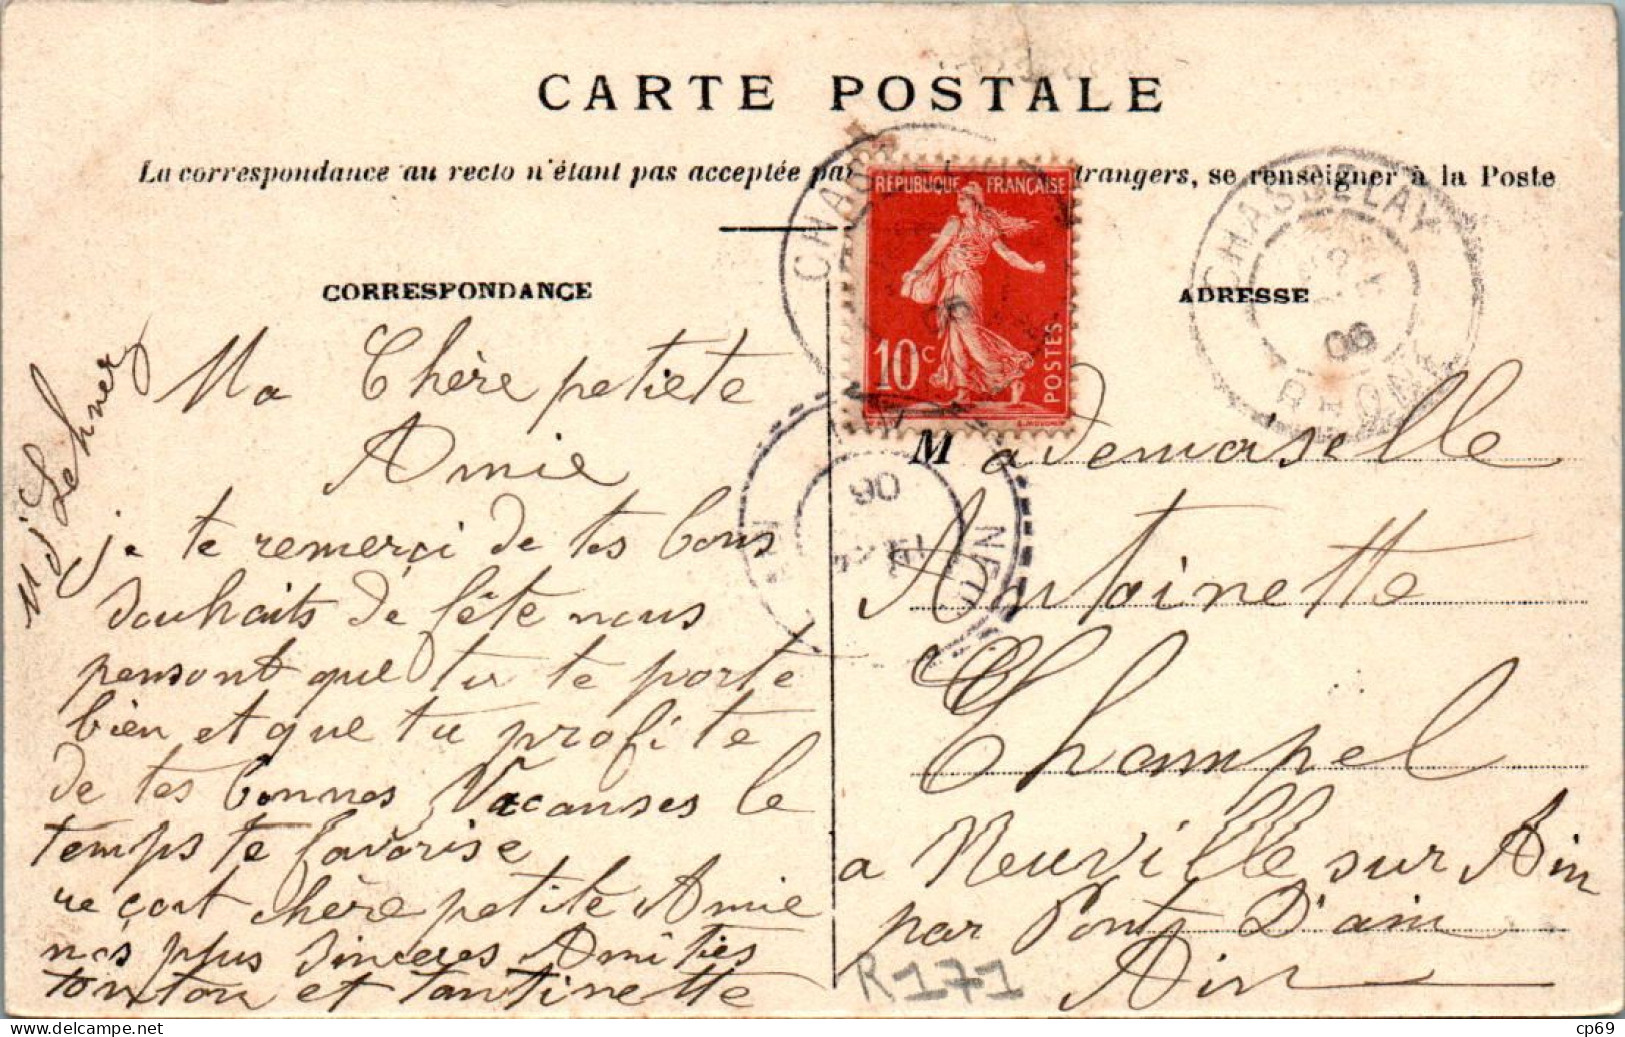 CARTE POSTALE
La correspondance au recto n'étant pas acceptée par trangers, se renseigner à la Poste
CORRESPONDANCE
Ma Chère petiete
Amie
je te remerçi de tes bons
Souhaits de fête nous
pensont que tu te porte
bien et que tu profite
de tes bonnes Vacanses le
temps te favorise
reçoit chère petite Amie
nos plus Sinceres Amitiés
tonton et tantinette
Lehner
REPUBLIQUE FRANÇAISE
10c
POSTES
CHASSELAY
06
RHONE
06
ADRESSE
Mademoiselle
Antoinette
Champel
a Neuville sur Ain
par Pont D'ain
Ain
R171
cp69